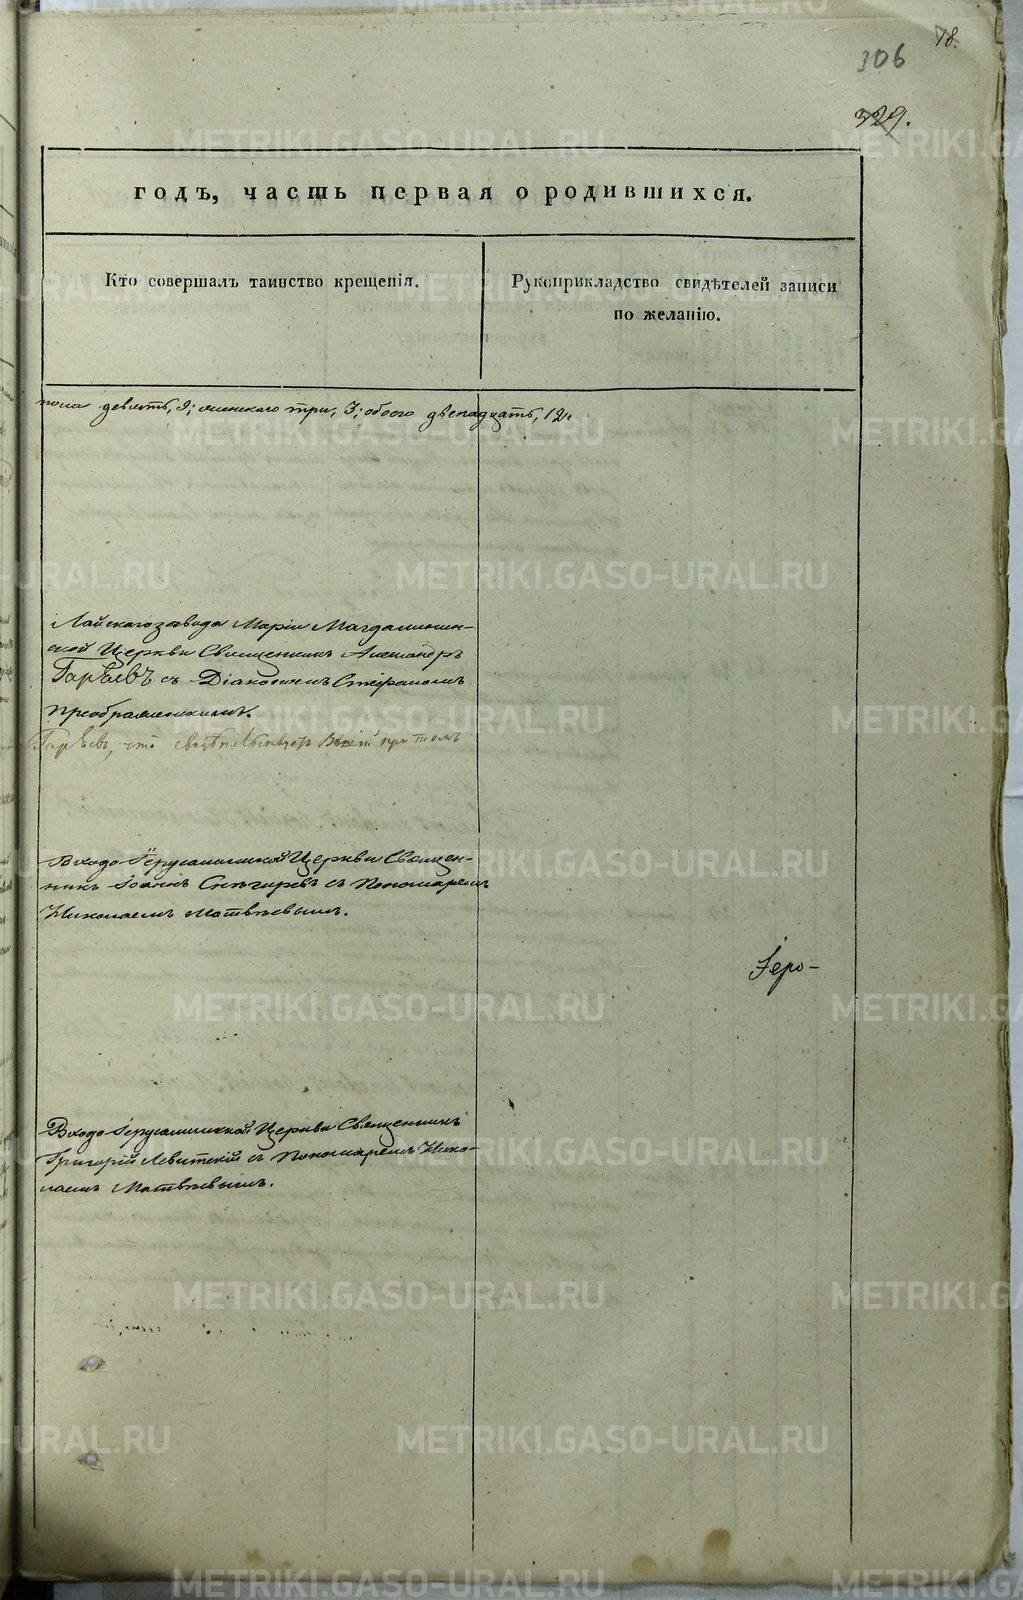 78.
306
329.
годъ, часть первая о родившихся.
Кто совершалъ таинство крещенія.
Рукоприкладство свидѣтелей записи
по желанію.
пола девять, 9; женскаго три, 3; обоего двенадцать, 12.
Лайскаго завода Маріи Магдалинин-
ской Церкви Священникъ Александръ
Гаряевъ съ Діакономъ Стефаномъ
Преображенскимъ.
Гаряевъ, что при томъ
Входо-Іерусалимской Церкви Священ-
никъ Іоаннъ Снегиревъ съ Пономаремъ
Николаемъ Матвѣевымъ.
Іеро-
Входо-Іерусалимской Церкви Священникъ
Григорій Левитскій съ Пономаремъ Нико-
лаемъ Матвѣевымъ.
METRIKI.GASO-URAL.RU